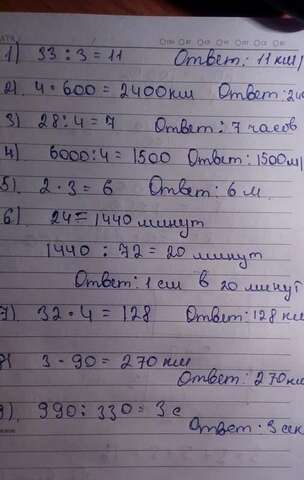 1) 33 : 3 = 11 Ответ: 11 км/
2) 4 · 600 = 2400 км Ответ: 240
3) 28 : 4 = 7 Ответ: 7 часов
4) 6000 : 4 = 1500 Ответ: 1500 м/
5). 2 · 3 = 6 Ответ: 6 м.
6) 24 = 1440 минут
1440 : 72 = 20 минут
Ответ: 1 см в 20 минут
7). 32 · 4 = 128 Ответ: 128 км
8) 3 · 90 = 270 км
Ответ: 270 км
9). 990 : 330 = 3 с
Ответ: 3 сек